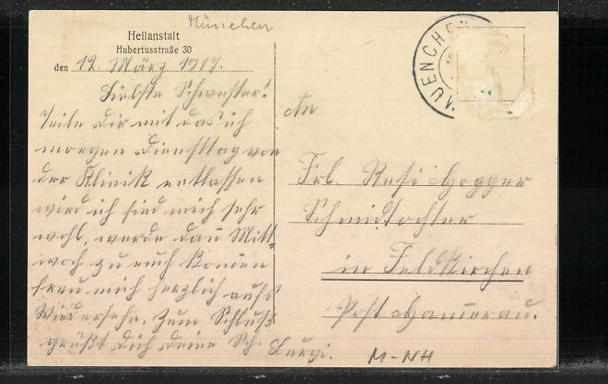 München
Heilanstalt
Hubertusstraße 30
den 12. März 1917.
Liebste Schwester!
Teile dir mit das ich
morgen Diensttag von
der Klinik entlassen
wird ich fied mich sehr
wohl, werde dan Mitt-
woch zu euch komen
freu mich herzlich aufs
Wiedersehn. Zum Schluß
grüßt dich deine Sch. Burgi.
MUENCHE
An
Frl. Resi Hogger
Schmidtochter
in Feldkirchen
Post Hamerau.
M-NH